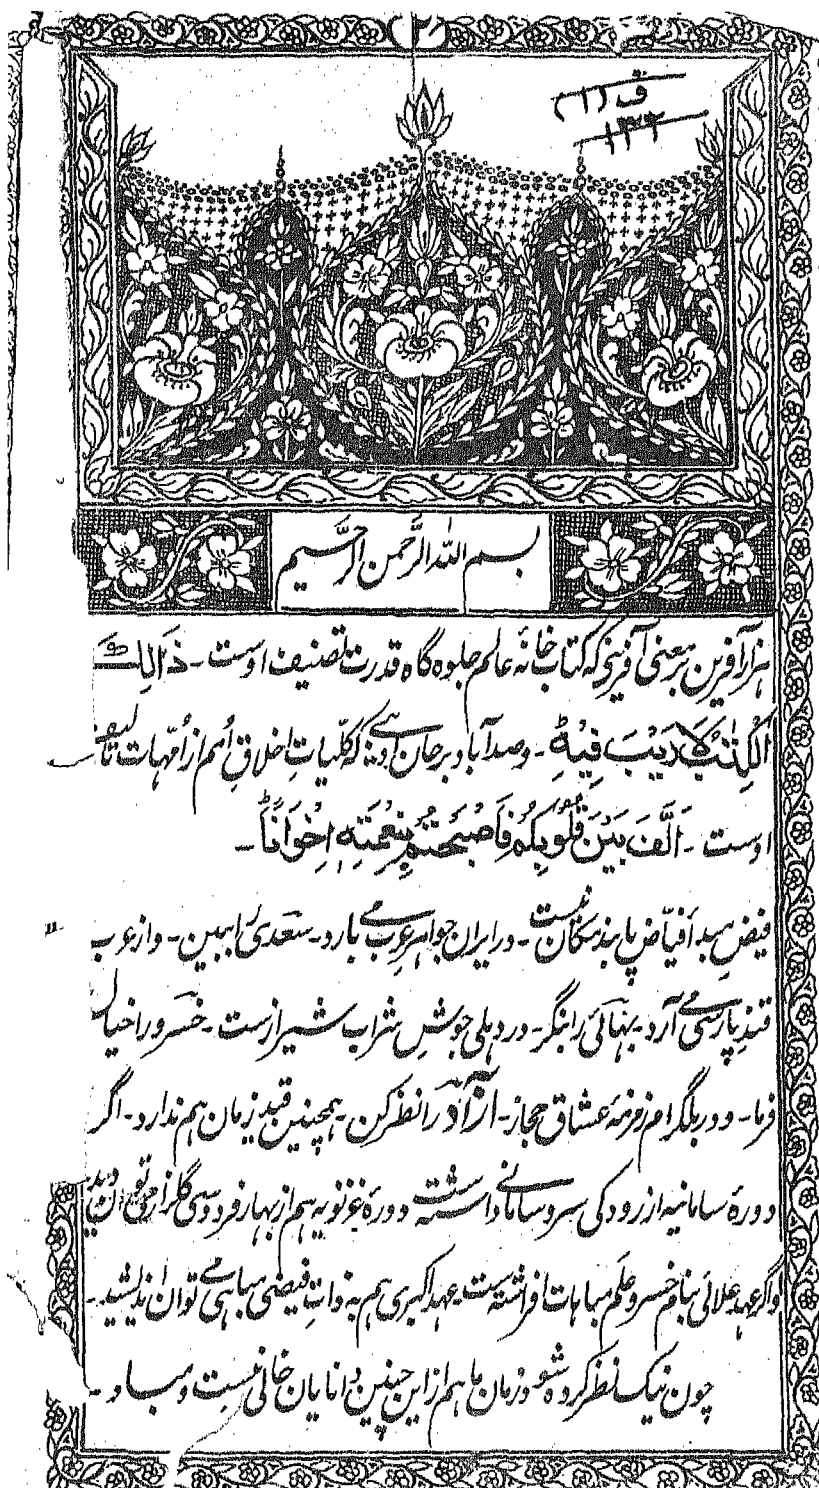 ۲
ق (۱)
۱۳۲
بسم اللہ الرحمن الرحیم
ہزار آفرین بر معنی آفرینے کہ کتاب خانۂ عالم جلوہ گاہ قدرت تصنیف اوست ۔ ذٰلِکَ
الْکِتٰبُ لَا رَیْبَ فِیْهِ ۔ وصد آباد بر جان دہے کہ کلّیاتِ اخلاقِ اُمم از اُمّہات تالیف
اوست ۔ اَلَّفَ بَیْنَ قُلُوْبِکُمْ فَاَصْبَحْتُمْ بِنِعْمَتِهٖ اِخْوَانًا ۔
فیضِ مبدأ فیّاض پابند مکان نیست ۔ در ایران جواہرِ عرب می بارد ۔ سعدی را ببین ۔ واز عرب
قندِ پارسی می آرد ۔ بہائی را بنگر ۔ در دہلی جوشِ شراب شیراز ست ۔ خسرو را خیال
فرما ۔ ودر بلگرام زمزمۂ عشاق حجاز ۔ آزاد را نظر کن ۔ ہمچنین قیدِ زمان ہم ندارد ۔ اگر
دورۂ سامانیہ از رودکی سر و سامانے داشتہ ست دورۂ غزنویہ ہم از بہار فردوسی گلزار می توان دید
واگر عہد علائی بنام خسرو علَم مباہات افراشتہ ست عہد اکبری ہم بذاتِ فیضی مباہی می توان اندیشید ۔
چون نیک نظر کردہ شود زمان ما ہم از این چنین دانایان خالی نیست و مباد ۔